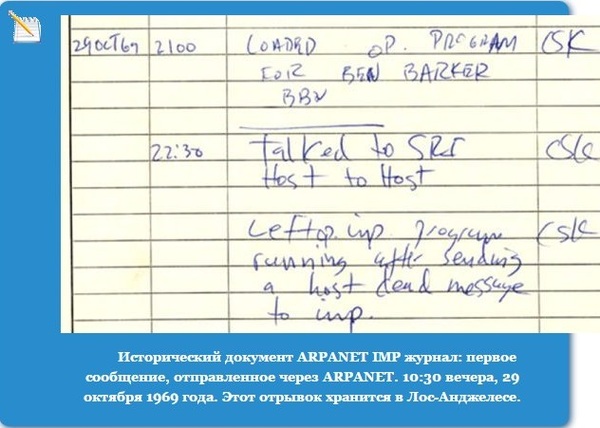 29 OCT 69 2100 LOADED OP. PROGRAM CSK
FOR BEN BARKER
BBN
22:30 Talked to SRI CSK
Host to Host
Left op. imp. program CSK
running after sending
a host dead message
to imp.
Исторический документ ARPANET IMP журнал: первое
сообщение, отправленное через ARPANET. 10:30 вечера, 29
октября 1969 года. Этот отрывок хранится в Лос-Анджелесе.